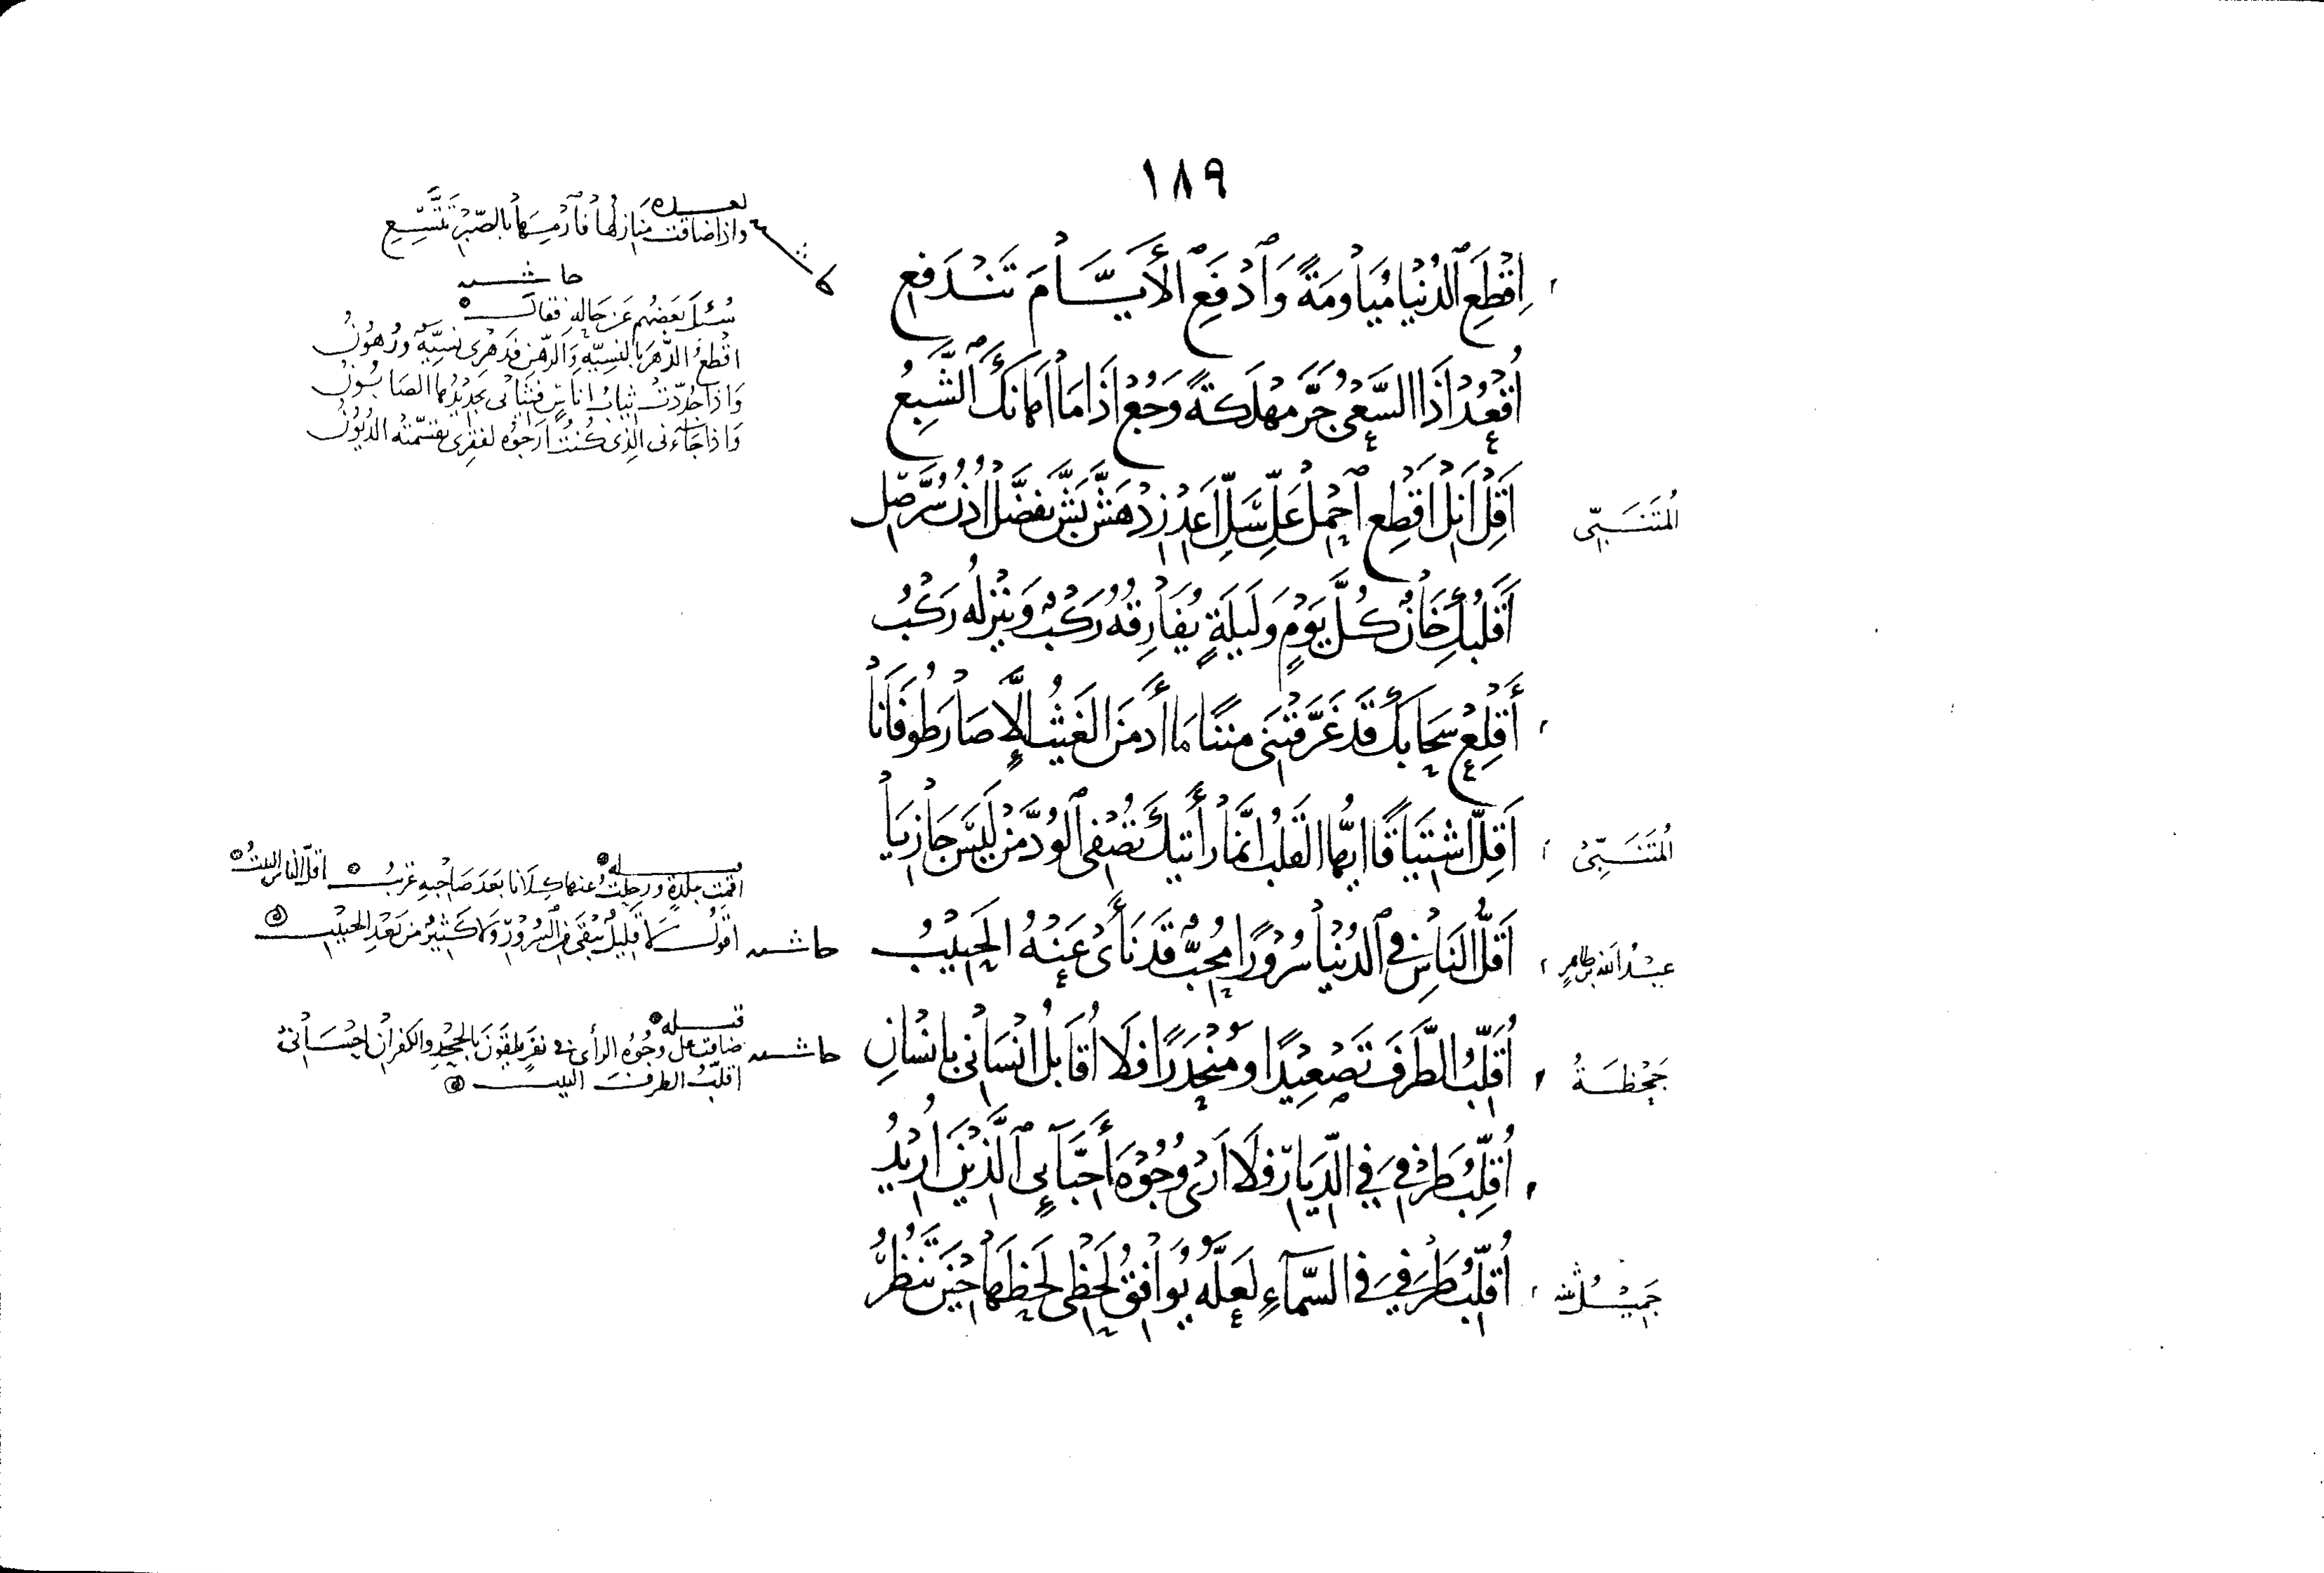 ١٨٩
اِقْطَعِ ٱلدُّنْيَا مُيَاوَمَةً وَٱدْفَعِ ٱلأَيَّامَ تَنْدَفِعِ
بعده
واذا ضاقت منازلها فَٱرْمِهَا بالصَّبْرِ تَتَّسِعِ
حاشيه
سُئِلَ بَعْضُهم عَن حَالِهِ فقالَ
اقطعُ الدَّهرَ بالنسِيَّةِ وَالرَّهْنِ فدَهْرِى نسِيَّةٌ ورُهُونُ
وَاذا جُدِّدَتْ ثيابُ اناسٍ فثيابى تجديدُها الصَابُونُ
وَاذا جَاءنى الَّذِى كُنْتُ ارجُوُه لفقرِى تقسَّمَتْهُ الدُيُوُنُ
اُقْعُدْ اذَا السَّعْىُ جَرَّ مهْلَكَةً وَجُعْ اذَا مَا اَهَانَكَ الشِّبَعُ
المُتَنَبِّى
اَقِلْ اَنِلْ اَقْطِعْ ٱحْمِلْ عَلِّ سَلِّ اَعِدْ زِدْ هَشَّ بَشَّ تفَضَّلْ اُدْنُ سُرَّ صِلِ
اَقَلْبُكِ خَانٌ كُلَّ يَوْمٍ وَلَيلَةٍ يُفَارِقُهُ رَكْبٌ وَيَنْزِلُه رَكْبُ
أَقْلِعْ سَحَابَكَ قَدْ غَرَّقْتَنِى مِنَنًا مَا أَدْمَنَ الغَيْثُ اِلَّا صَارَ طُوفَانَا
المُتَنَبِّىْ
اَقِلَّ اشتِيَاقًا ايُّهَا القَلْبُ اِنَّمَا رأَيتُكَ تُصْفِى ٱلوُدَّ مَنْ لَيْسَ جَازِيَا
عبيدُ الله بن طاهرٍ
اَقَلُّ النَاسِ فى ٱلدُنْيَا سُرُوْرًا مُحِبٌّ قَدْ نَأَىْ عَنْهُ الحَبِيْبُ
قبله
اقمت ببلدةٍ ورحلتُ عنها كِلَانا بَعْدَ صَاحِبِهِ غريبُ اقلُّ الناسِ البيتُ
حاشيه اقولُ لا قليلٌ يبْقَى من السُروُرِ ولا كَثِيْرٌ من بَعْدِ الحَبِيْبِ
جَحْظَةُ
اُقَلِّبُ الطَّرْفَ تَصْعِيْدًا ومُنْحَدَرًا فَلَا اُقَابِلُ اِنْسَانِى بِانْسَانِ
قبله
حاشيه ضاقت على وُجُوُهُ الرأى فى نفرٍ يلقَوْنَ بالجُحْدِ والكُفْرَانِ اِحْسَانى
اقلِّبُ الطرفَ البيت
اُقَلِّبُ طَرْفِى فِى الدِّيَارِ فَلَا اَرَىْ وُجُوْهَ أَحِبَّآئِى ٱلَّذِيْنَ اُرِيْدُ
جَمِيْلُ
اُقَلِّبُ طَرْفِى فى السَّمآءِ لَعَلَّهُ يُوَافِقُ لَحْظِى لَحْظَهَا حِيْنَ تَنْظُرُ